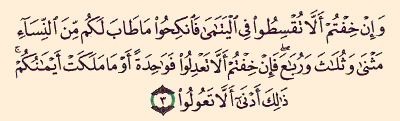 وَإِنْ خِفْتُمْ أَلَّا تُقْسِطُوا۟ فِى ٱلْيَتَـٰمَىٰ فَٱنكِحُوا۟ مَا طَابَ لَكُم مِّنَ ٱلنِّسَآءِ
مَثْنَىٰ وَثُلَـٰثَ وَرُبَـٰعَ ۖ فَإِنْ خِفْتُمْ أَلَّا تَعْدِلُوا۟ فَوَٰحِدَةً أَوْ مَا مَلَكَتْ أَيْمَـٰنُكُمْ ۚ
ذَٰلِكَ أَدْنَىٰٓ أَلَّا تَعُولُوا۟ ٣